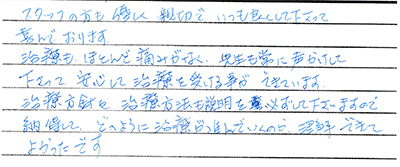 スタッフの方も優しく親切で、いつも良くして下さって
喜んでおります
治療も、ほとんど痛みがなく、先生も常に声かけして
下さって安心して治療を受ける事ができています。
治療方針や治療方法も説明を必ずして下さいますので
納得して、どのように治療が進んでいくのか、理解できて
よかったです